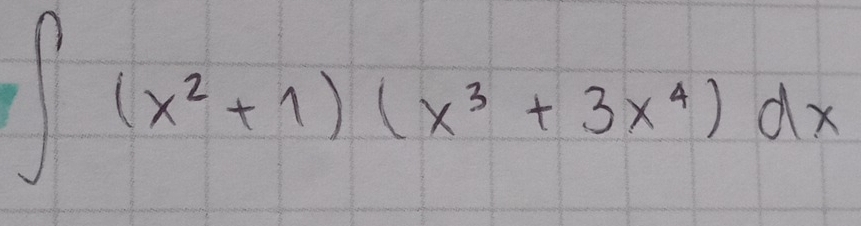 ∫ (x² + 1) (x³ + 3x⁴) dx